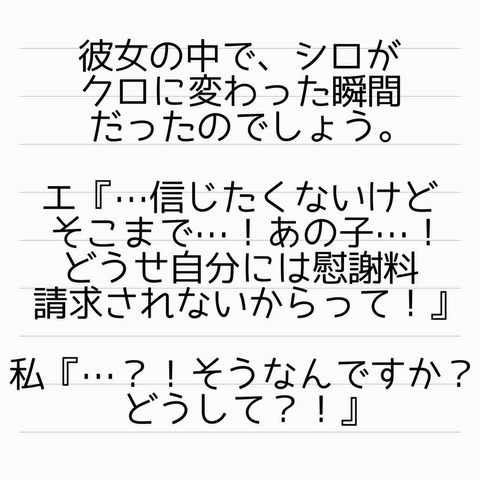 彼女の中で、シロが
クロに変わった瞬間
だったのでしょう。
エ『…信じたくないけど
そこまで…！あの子…！
どうせ自分には慰謝料
請求されないからって！』
私『…？！そうなんですか？
どうして？！』